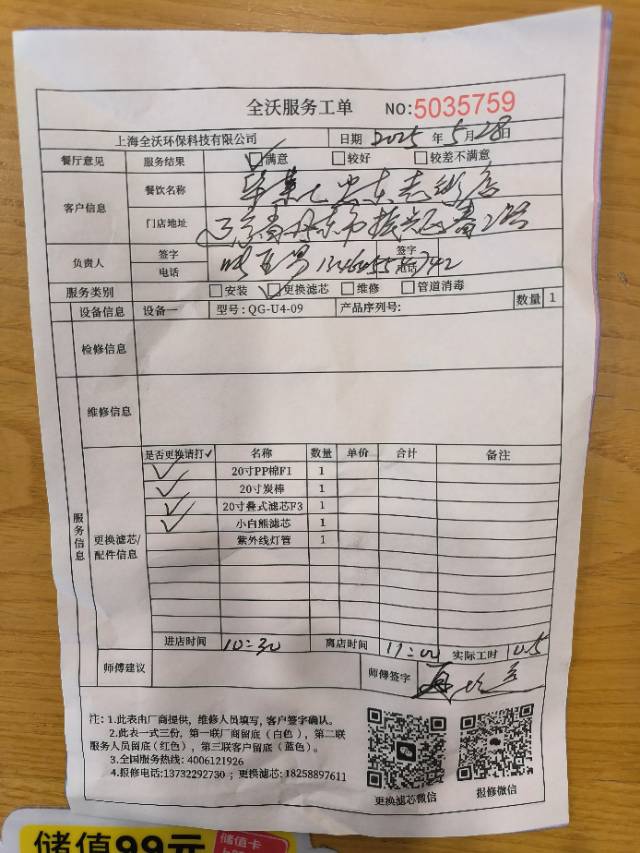 全沃服务工单 NO:5035759
上海全沃环保科技有限公司 日期 2025 年 5 月 28 日
餐厅意见 服务结果 ☑满意 □较好 □较差不满意
客户信息 餐饮名称
门店地址 辽宁省丹东市振兴区
负责人 签字 签字
电话 电话
服务类别 □安装 ☑更换滤芯 □维修 □管道消毒
设备信息 设备一 型号: QG-U4-09 产品序列号: 数量 1
检修信息
维修信息
服务信息
更换滤芯/配件信息
是否更换请打✓ 名称 数量 单价 合计 备注
✓ 20寸PP棉F1 1
✓ 20寸炭棒 1
✓ 20寸叠式滤芯F3 1
✓ 小白熊滤芯 1
紫外线灯管 1
进店时间 10:30 离店时间 11:00 实际工时 0.5
师傅建议 师傅签字
注: 1.此表由厂商提供, 维修人员填写, 客户签字确认。
2.此表一式三份, 第一联厂商留底(白色), 第二联
服务人员留底(红色), 第三联客户留底(蓝色)。
3.全国服务热线: 4006121926
4.报修电话:13732292730; 更换滤芯: 18258897611
更换滤芯微信 报修微信
储值99元 储值卡